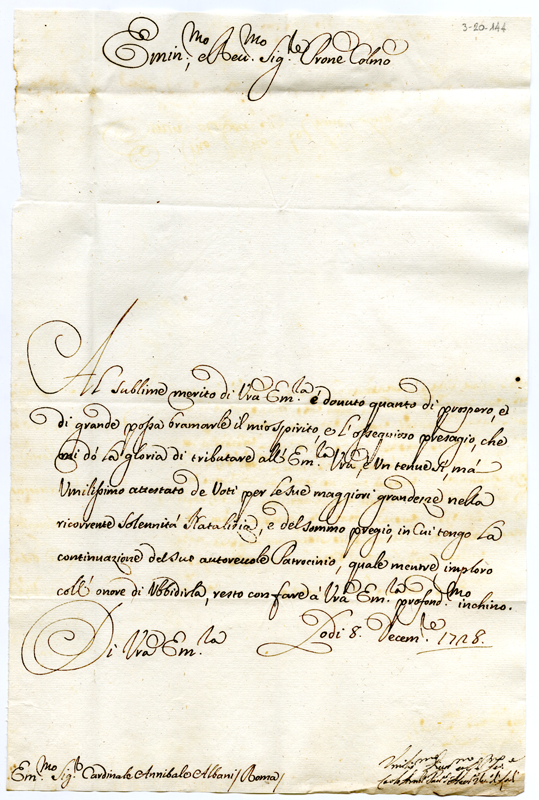 3-20-144
Emin.mo, e Rev.mo Sig.re Prone Colmo
Al sublime merito di Vrā Em.la è dovuto quanto di prospero, e
di grande possa bramarle il mio spirito, e l'ossequioso presagio, che
mi dò la gloria di tributare all'Em.la Vrā, è un tenue sì, mà
Umilissimo attestato de Voti per le sue maggiori grandezze nella
ricorrente Solennità Natalizia, e del sommo pregio, in cui tengo la
continuazione del suo autorevole Patrocinio, quale mentre imploro
coll'onore di Ubbidirla, resto con fare à Vrā Em.la profond.mo inchino.
Di Vrā Em.la Lodi 8. Decem.re 1728.
Em.mo Sig.r Cardinale Annibale Albani / Roma /